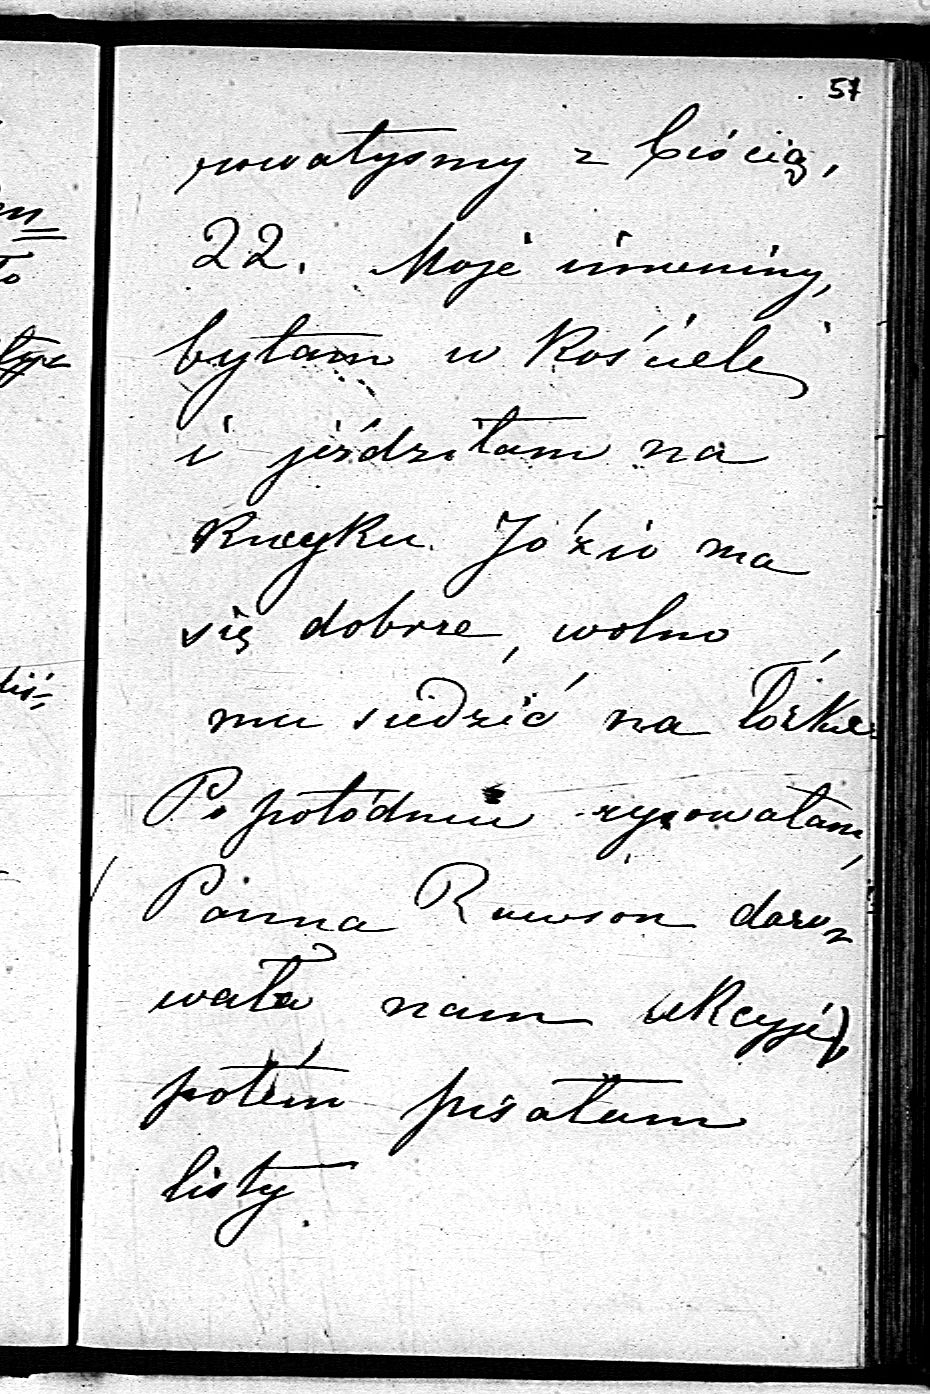 57
rowałysmy z Ciścią,
22. Moje imieniny,
byłam w Kościele,
i jeździłam na
Kucyku. Józio ma
się dobrze, wolno
mu siedzić na łóżku.
Po połódniu rysowałam,
Panna Rawson daro=
wała nam lekcyję,
potém pisałam
listy.